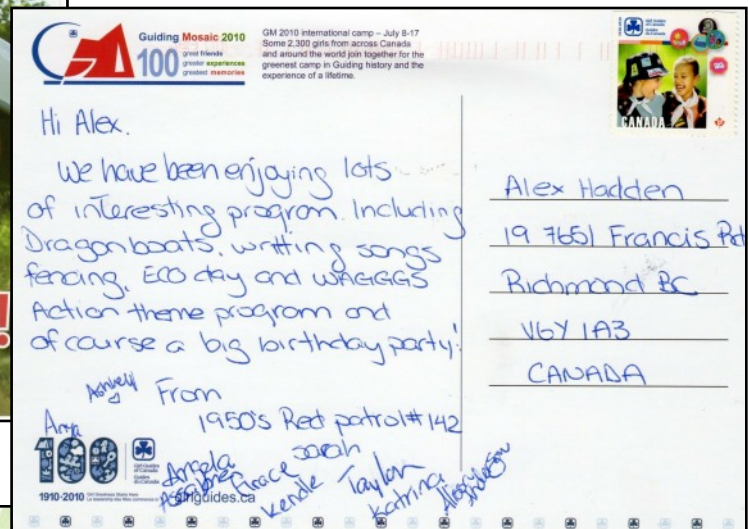 Guiding Mosaic 2010
100
great friends
greater experiences
greatest memories
GM 2010 international camp – July 8-17
Some 2,300 girls from across Canada
and around the world join together for the
greenest camp in Guiding history and the
experience of a lifetime.
Girl Guides
of Canada
Guides
du Canada
CANADA
P
Hi Alex.
We have been enjoying lots
of interesting program. Including
Dragonboats, writting songs
fencing, ECO day and WAGGGS
Action theme program and
of course a big birthday party!
From
1950's Red patrol # 142
Ashely
Anya
Angela
Grace
Sarah
Kendle
Taylor
Katrina
Alex Hadden
19 7651 Francis Rd
Richmond BC
V6Y 1A3
CANADA
100
1910-2010
Girl Guides
of Canada
Guides
du Canada
Girl Greatness Starts Here
girlguides.ca
!